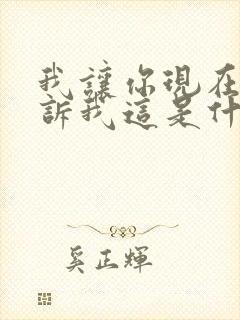 我讓你現在
訴我這是什
奚正輝